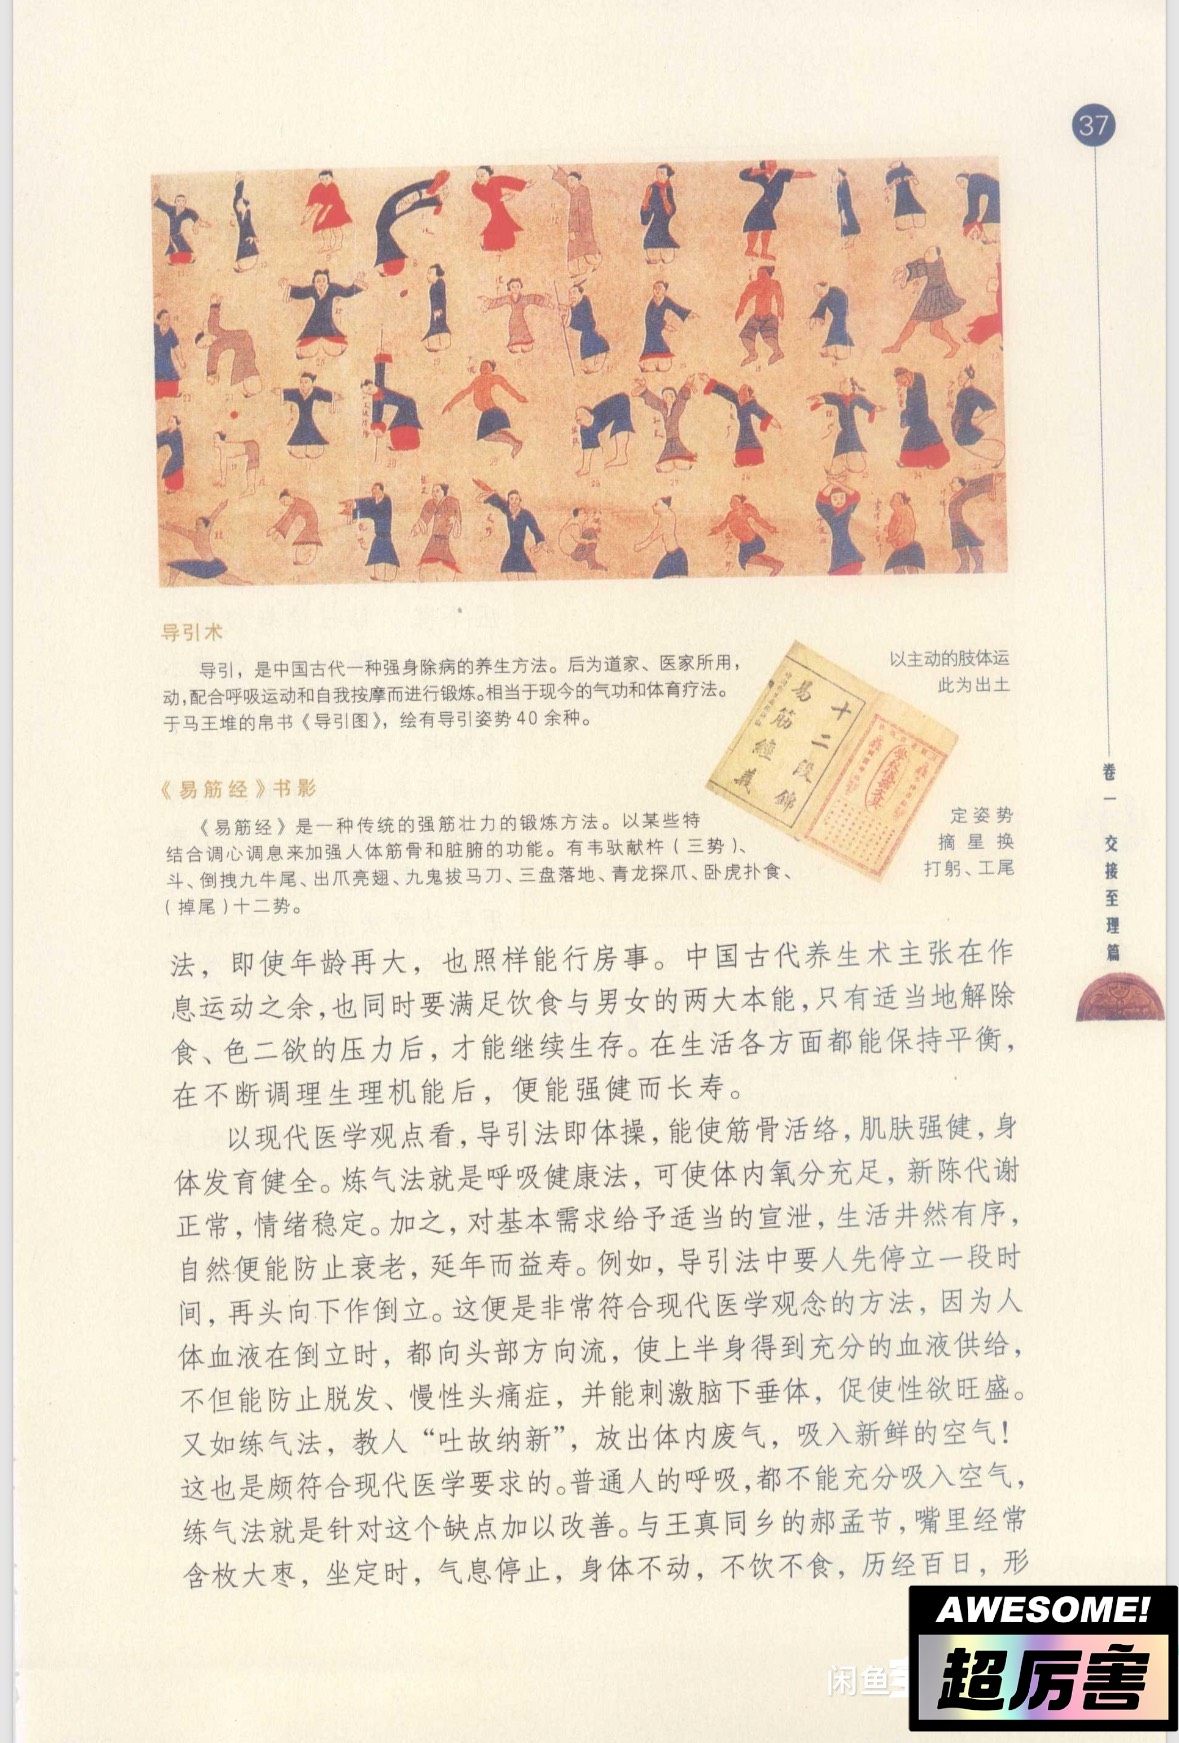 37
导引术
导引，是中国古代一种强身除病的养生方法。后为道家、医家所用，以主动的肢体运
动，配合呼吸运动和自我按摩而进行锻炼。相当于现今的气功和体育疗法。此为出土
于马王堆的帛书《导引图》，绘有导引姿势40余种。
易筋经义
十二段锦
《易筋经》书影
《易筋经》是一种传统的强筋壮力的锻炼方法。以某些特定姿势
结合调心调息来加强人体筋骨和脏腑的功能。有韦驮献杵（三势）、摘星换
斗、倒拽九牛尾、出爪亮翅、九鬼拔马刀、三盘落地、青龙探爪、卧虎扑食、打躬、工尾
（掉尾）十二势。
卷一 交接至理篇
法，即使年龄再大，也照样能行房事。中国古代养生术主张在作
息运动之余，也同时要满足饮食与男女的两大本能，只有适当地解除
食、色二欲的压力后，才能继续生存。在生活各方面都能保持平衡，
在不断调理生理机能后，便能强健而长寿。
以现代医学观点看，导引法即体操，能使筋骨活络，肌肤强健，身
体发育健全。炼气法就是呼吸健康法，可使体内氧分充足，新陈代谢
正常，情绪稳定。加之，对基本需求给予适当的宣泄，生活井然有序，
自然便能防止衰老，延年而益寿。例如，导引法中要人先停立一段时
间，再头向下作倒立。这便是非常符合现代医学观念的方法，因为人
体血液在倒立时，都向头部方向流，使上半身得到充分的血液供给，
不但能防止脱发、慢性头痛症，并能刺激脑下垂体，促使性欲旺盛。
又如练气法，教人“吐故纳新”，放出体内废气，吸入新鲜的空气！
这也是颇符合现代医学要求的。普通人的呼吸，都不能充分吸入空气，
练气法就是针对这个缺点加以改善。与王真同乡的郝孟节，嘴里经常
含枚大枣，坐定时，气息停止，身体不动，不饮不食，历经百日，形
闲鱼
AWESOME!
超厉害